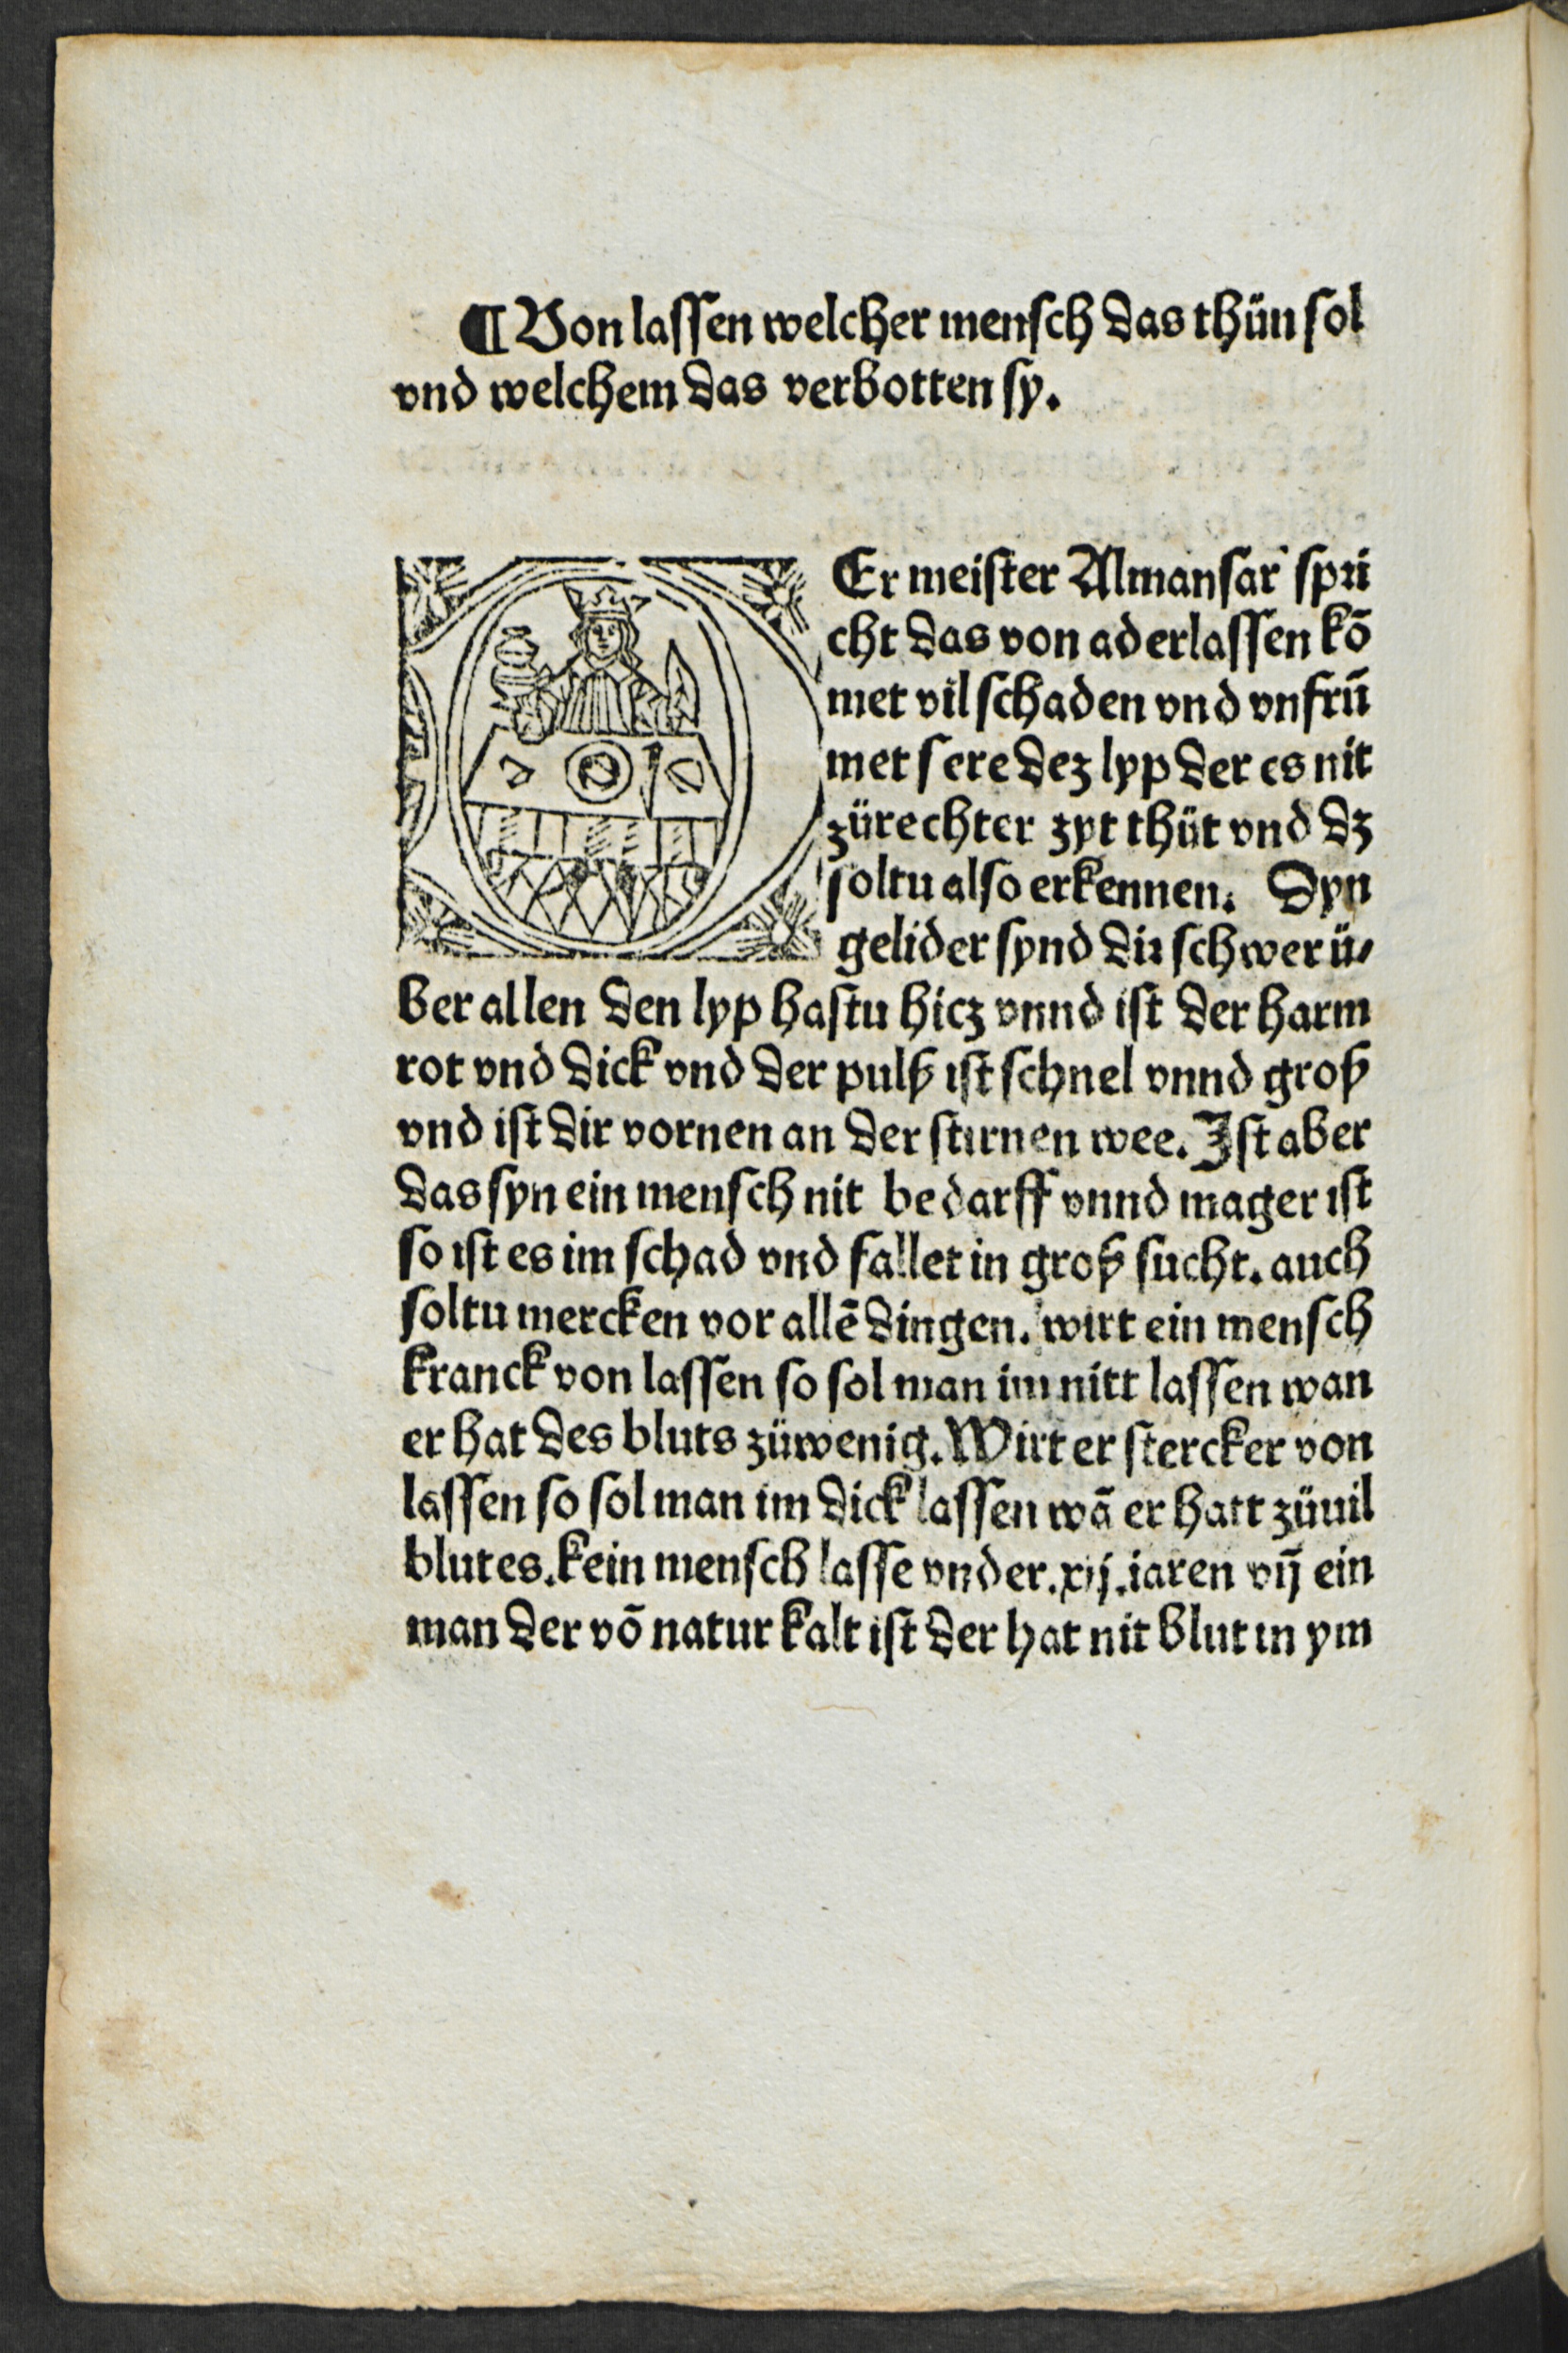 ¶ Von lassen welcher mensch das thün sol
vnd welchem das verbotten sy.
Er meister Almansar spri
cht das von aderlassen kō
met vil schaden vnd vnfrū
met sere dez lyp der es nit
zürechter zyt thüt vnd dz
soltu also erkennen. Dyn
gelider synd dir schwer ü⸗
ber allen den lyp hastu hicz vnnd ist der harm
rot vnd dick vnd der pulß ist schnel vnnd groß
vnd ist dir vornen an der stirnen wee. Ist aber
das syn ein mensch nit bedarff vnnd mager ist
so ist es im schad vnd fallet in groß sucht. auch
soltu mercken vor allē dingen. wirt ein mensch
kranck von lassen so sol man im nitt lassen wan
er hat des bluts züwenig. Wirt er stercker von
lassen so sol man im dick lassen wā er hatt züuil
blutes. kein mensch lasse vnder .xij. iaren vn̄ ein
man der vō natur kalt ist der hat nit blut in ym